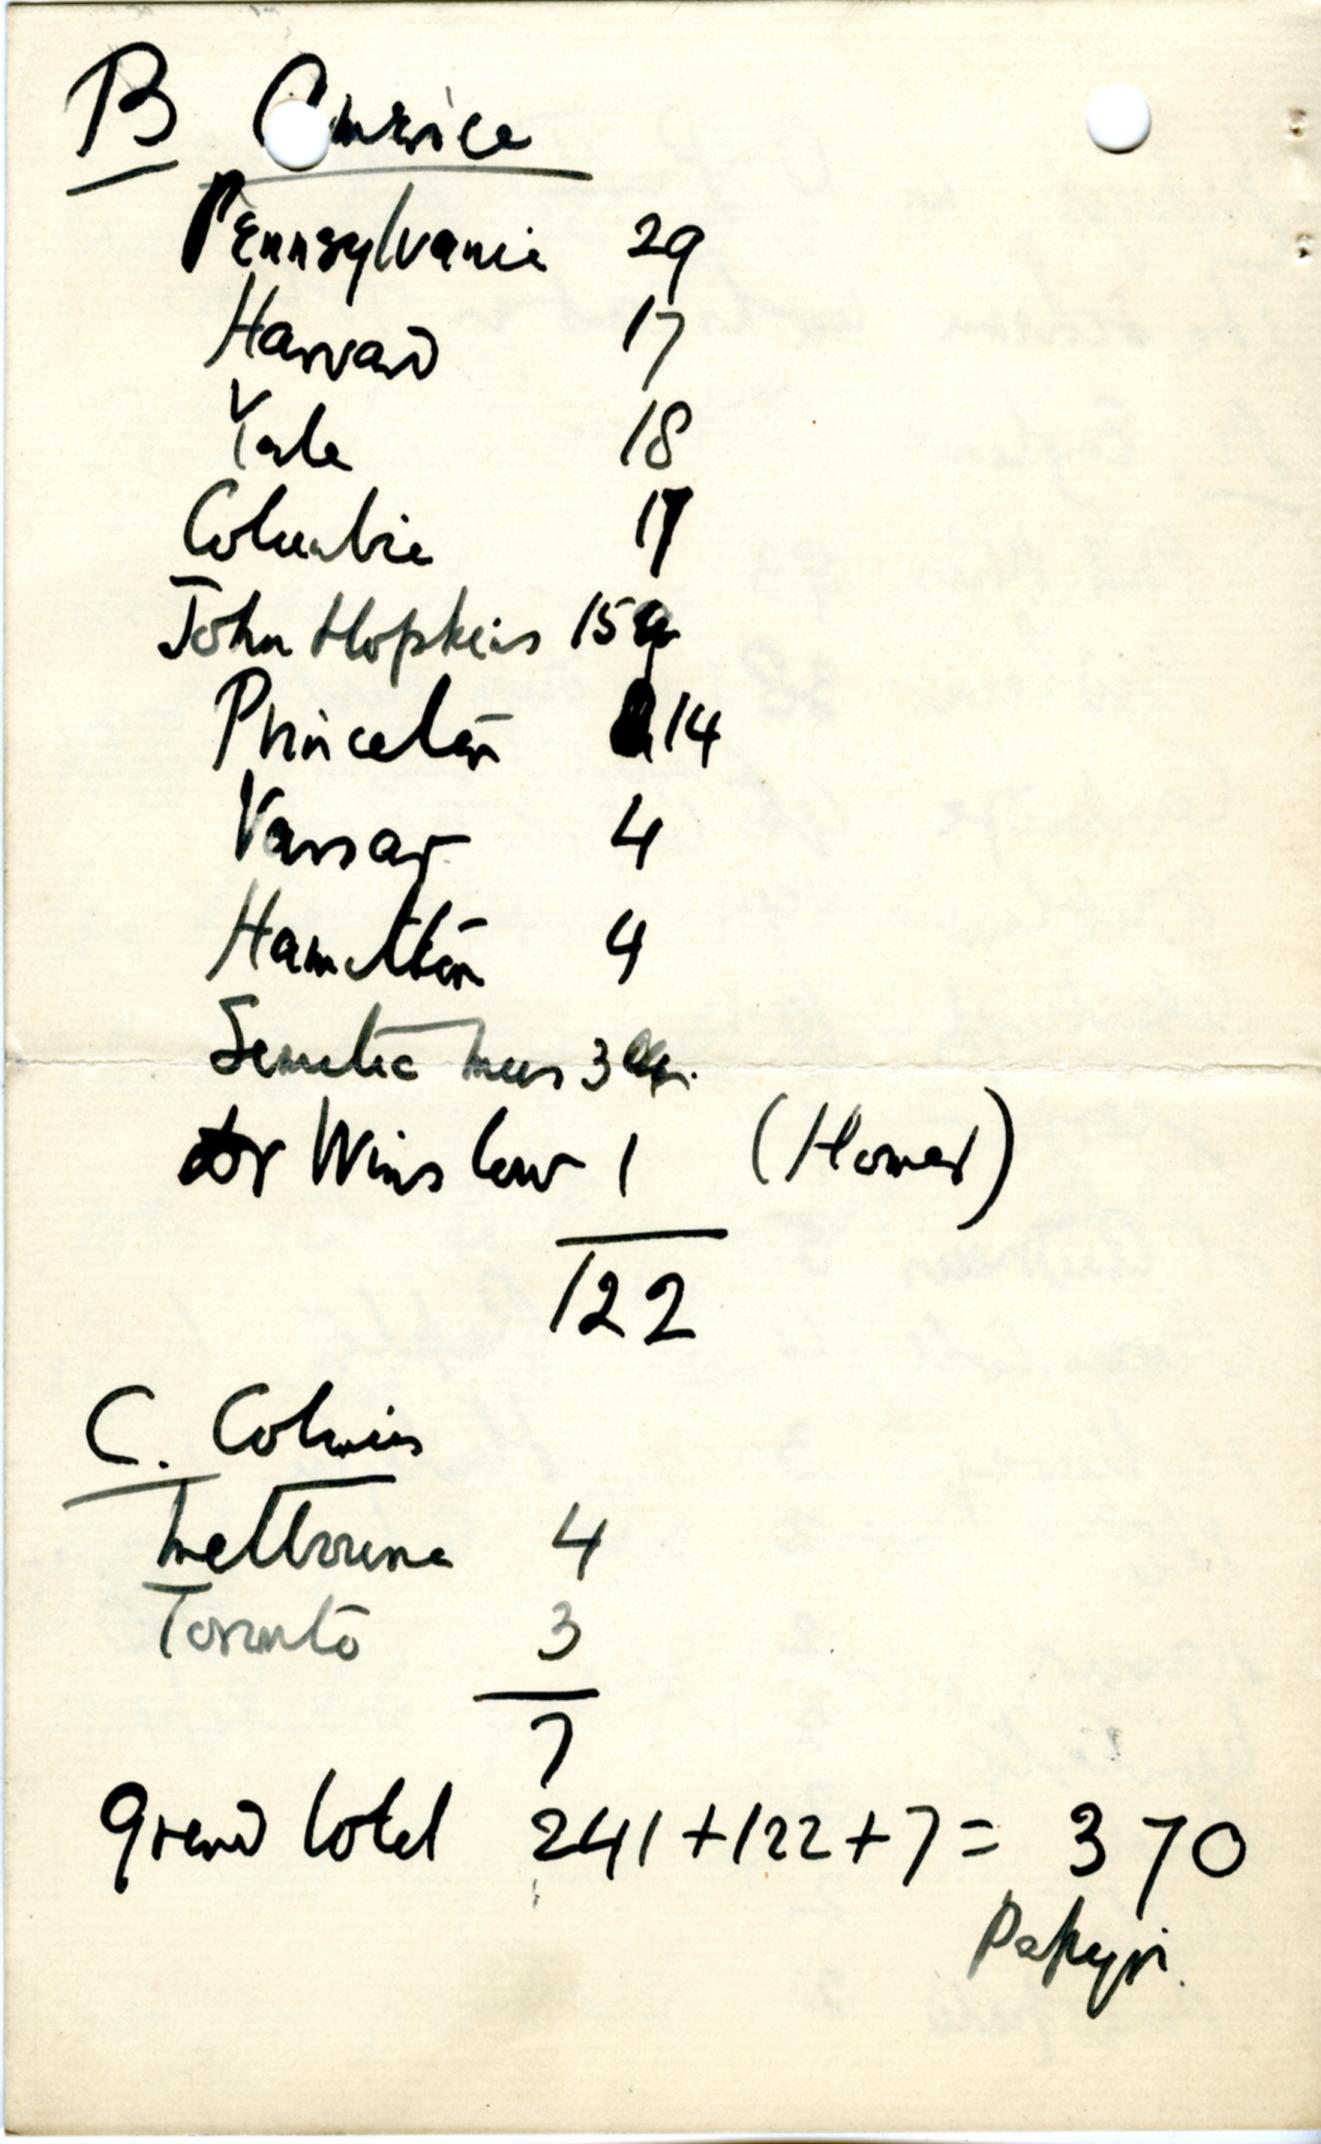 B America
Pennsylvania 29
Harvard 17
Yale 18
Columbia 17
John Hopkins 15
Princeton 14
Vassar 4
Hamilton 4
Semitic Mus 3
Dr Winslow 1 (Homer)
122
C. Colonies
Melbourne 4
Toronto 3
7
Grand total 241+122+7= 370
Papyri.